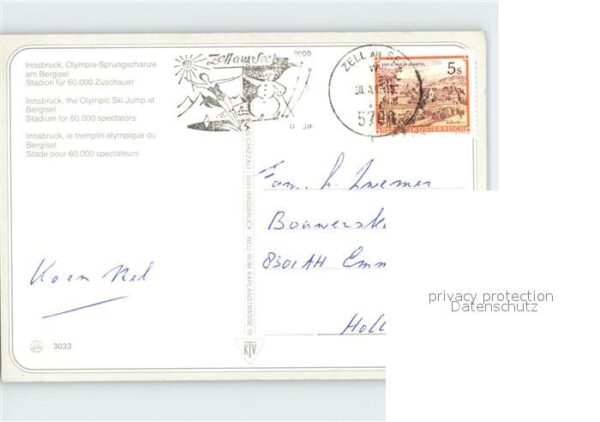 Innsbruck, Olympia-Sprungschanze
am Bergisel
Stadion für 60.000 Zuschauer
Innsbruck, the Olympic Ski Jump at
Bergisel
Stadium for 60.000 spectators
Innsbruck, le tremplin olympique du
Bergisel
Stade pour 60.000 spectateurs
Zell am See
ZELL AM S
5700
5s
REPUBLIK ÖSTERREICH
Fam. h. Zwemer
Bouwersk
8301 AH Emm
Holl
Koen Nel
CHIZZALI 6040 INNSBRUCK - NEU-RUM KAPLANSTRASSE 10
KTV
3033
privacy protection
Datenschutz